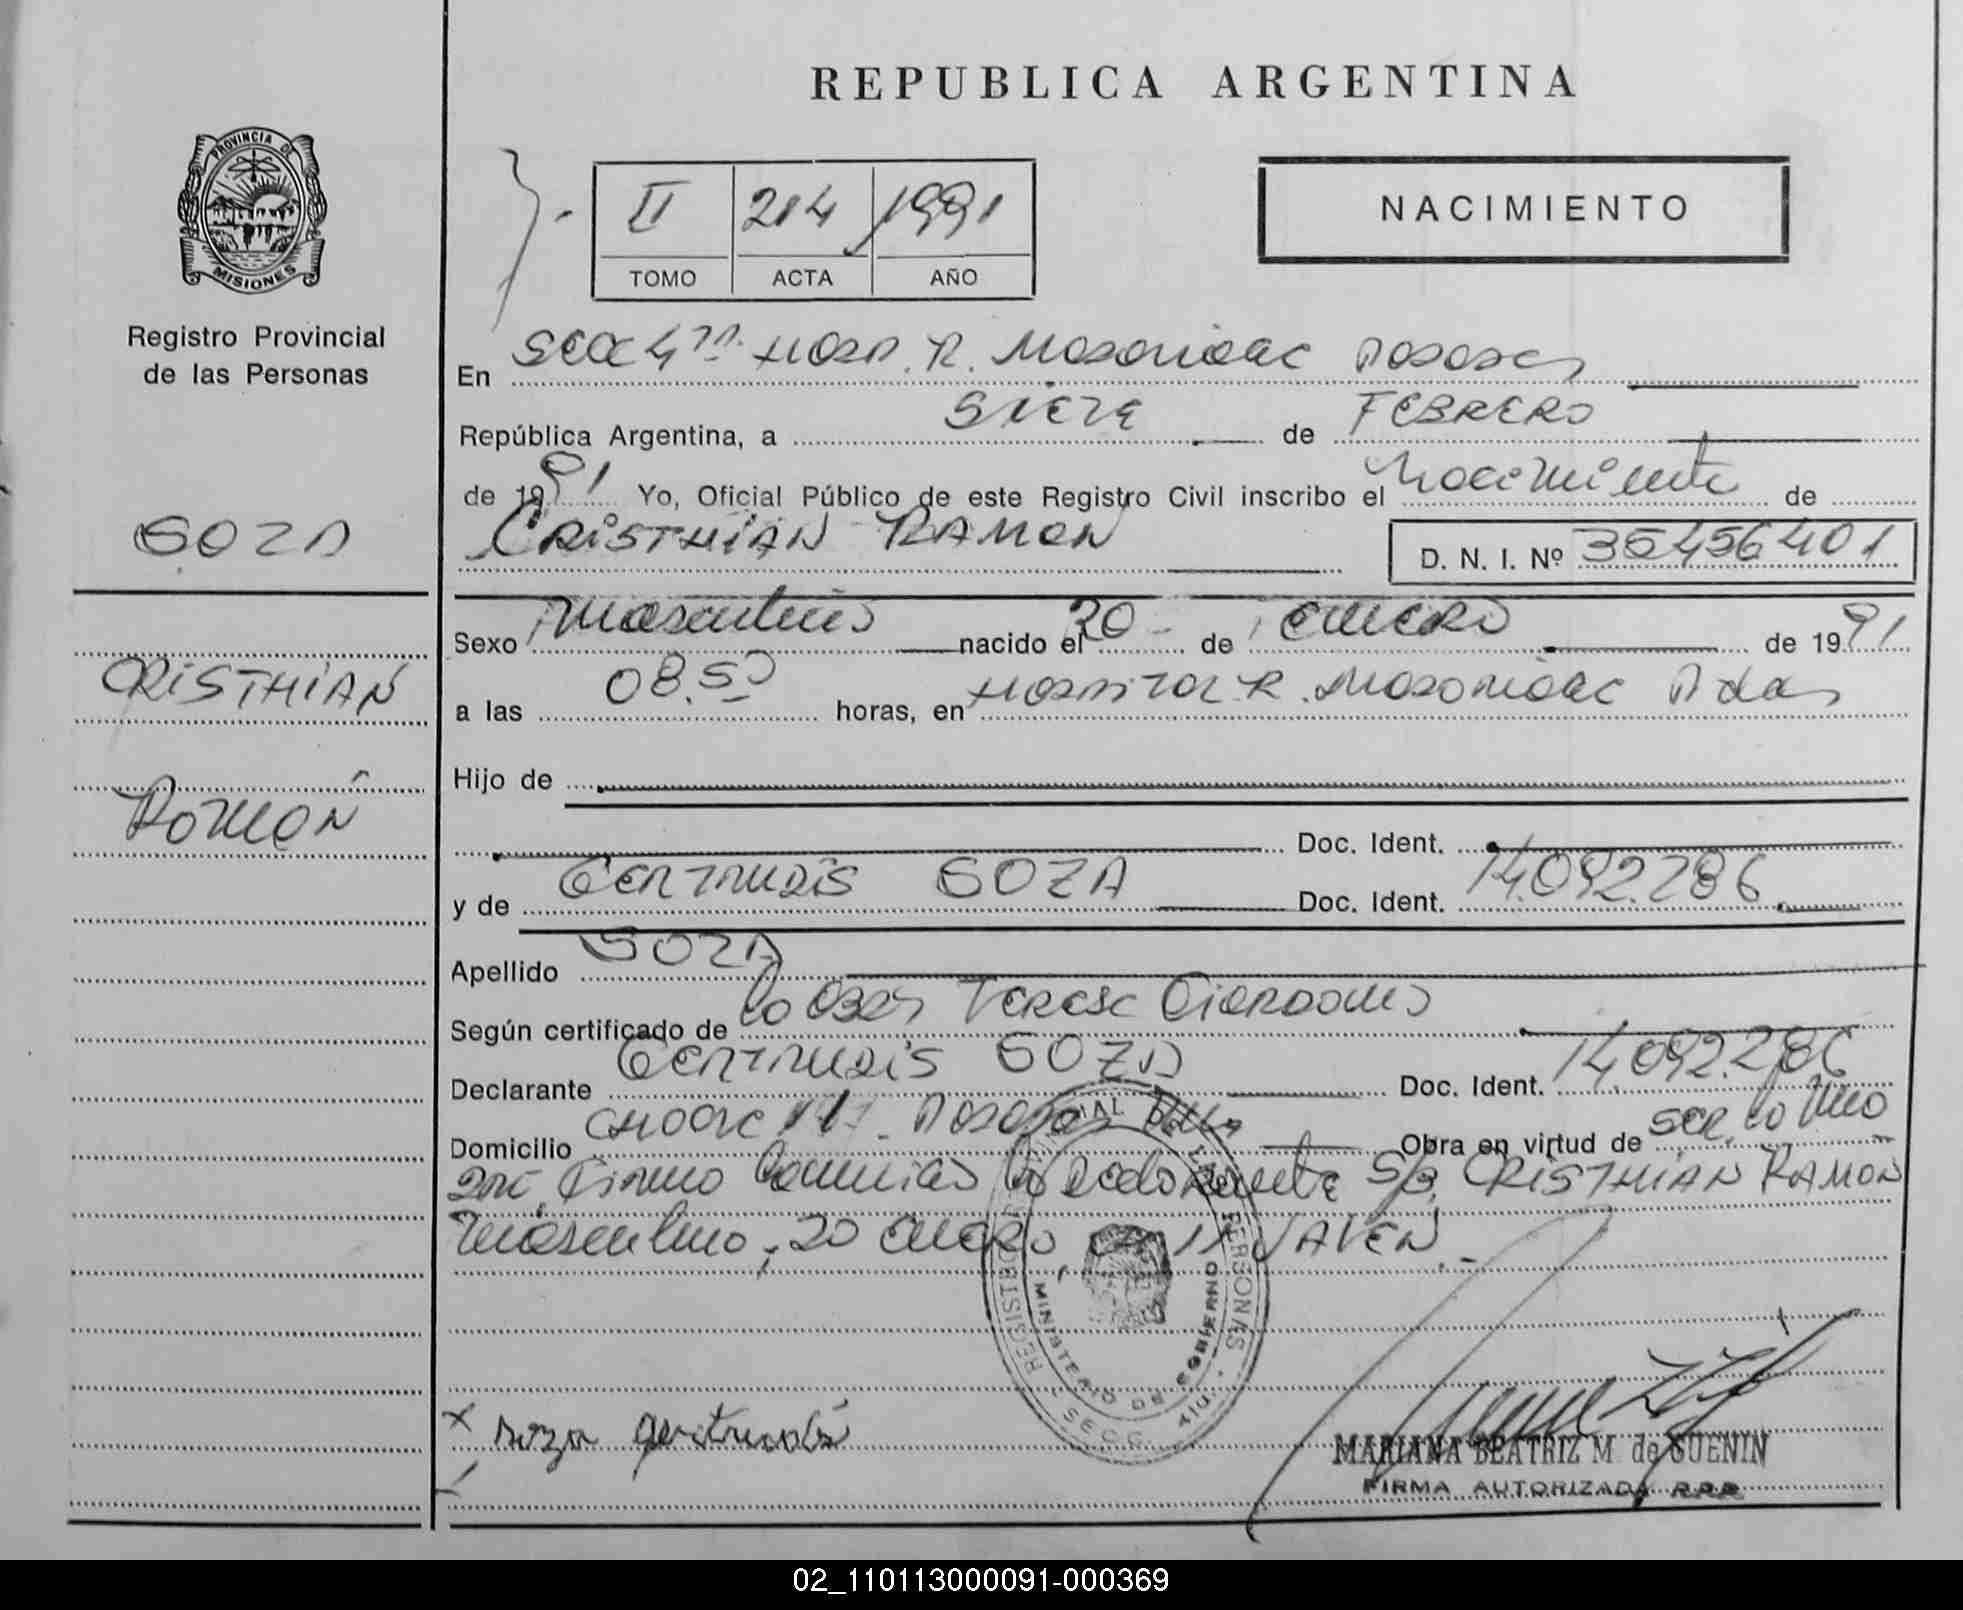 REPUBLICA ARGENTINA
PROVINCIA DE
MISIONES
Registro Provincial
de las Personas
II 214 1991
TOMO ACTA AÑO
NACIMIENTO
En Secc 4ta Hosp. R. Madariaga Posadas
República Argentina, a SIETE de FEBRERO
de 1991 Yo, Oficial Público de este Registro Civil inscribo el Nacimiento de
CRISTHIAN RAMON D. N. I. Nº 35456401
SOZA
CRISTHIAN
Ramon
Sexo Masculino nacido el 20 de ENERO de 1991
a las 08.50 horas, en Hospital R. Madariaga Pdas
Hijo de
Doc. Ident.
y de GERTRUDIS SOZA Doc. Ident. 14.092.286
Apellido SOZA
Según certificado de la Obst Teresa
Declarante GERTRUDIS SOZA Doc. Ident. 14.092.286
Domicilio Posadas Obra en virtud de ser la
firma la declarante S/B. CRISTHIAN RAMON
Masculino, 20 ENERO VALEN.
REGISTRO PROVINCIAL DE LAS PERSONAS
MINISTERIO DE GOBIERNO
SECC. 4ta.
x soza gertrudis
MARIANA BEATRIZ M. de GUENIN
FIRMA AUTORIZADA R.P.P.
02_110113000091-000369